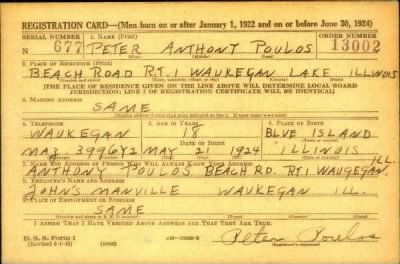 REGISTRATION CARD—(Men born on or after January 1, 1922 and on or before June 30, 1924)
SERIAL NUMBER 1. NAME (Print) ORDER NUMBER
N 677 PETER ANTHONY POULOS 13002
2. PLACE OF RESIDENCE (Print)
BEACH ROAD RT. 1 WAUKEGAN LAKE ILLINOIS
[THE PLACE OF RESIDENCE GIVEN ON THE LINE ABOVE WILL DETERMINE LOCAL BOARD
JURISDICTION; LINE 2 OF REGISTRATION CERTIFICATE WILL BE IDENTICAL]
3. MAILING ADDRESS
SAME
4. TELEPHONE 5. AGE IN YEARS 6. PLACE OF BIRTH
WAUKEGAN 18 BLUE ISLAND
DATE OF BIRTH
MAJ. 3996Y2 MAY 21 1924 ILLINOIS
7. NAME AND ADDRESS OF PERSON WHO WILL ALWAYS KNOW YOUR ADDRESS ILL.
ANTHONY POULOS BEACH RD. RT1 WAUGEGAN,
8. EMPLOYER'S NAME AND ADDRESS
JOHN'S MANVILLE WAUKEGAN ILL.
9. PLACE OF EMPLOYMENT OR BUSINESS
SAME
I AFFIRM THAT I HAVE VERIFIED ABOVE ANSWERS AND THAT THEY ARE TRUE.
D. S. S. Form 1
(Revised 6-1-42)
Peter Poulos
(Registrant's signature)